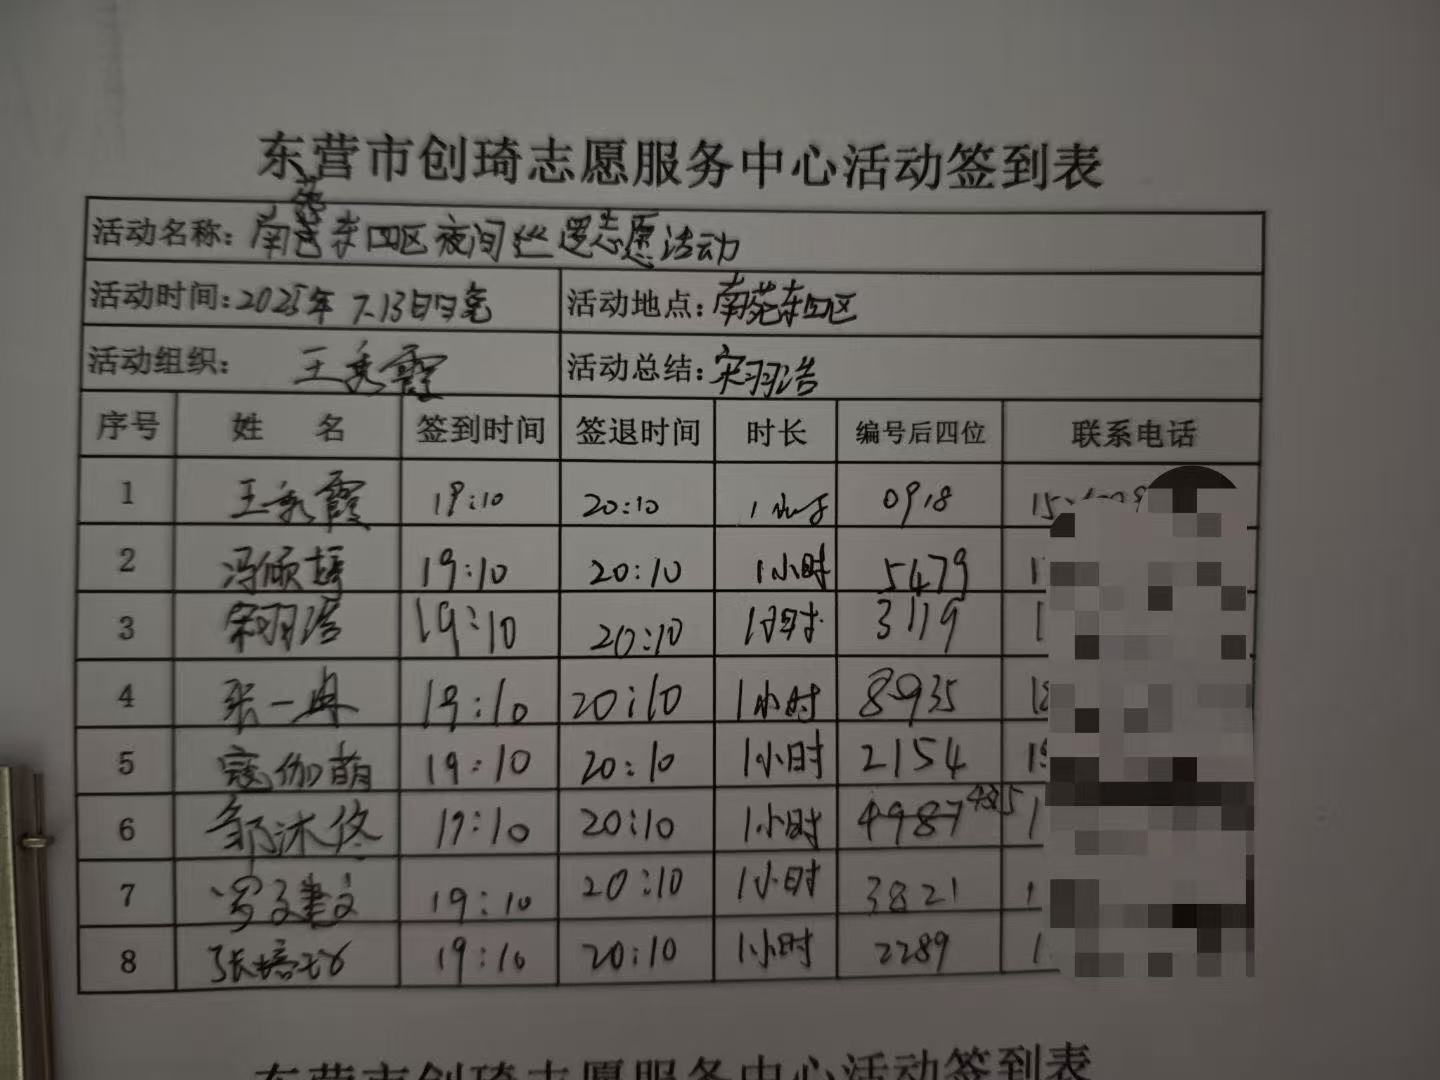 东营市创琦志愿服务中心活动签到表
活动名称: 南苑东四区夜间巡逻志愿活动
活动时间: 2025年 7.13日 活动地点: 南苑东四区
活动组织: 王秀霞 活动总结: 宋羽浩
序号 姓 名 签到时间 签退时间 时长 编号后四位 联系电话
1 王秀霞 19:10 20:10 1小时 0918 15
2 冯倾 19:10 20:10 1小时 5479 1
3 宋羽浩 19:10 20:10 1小时 3119 1
4 张一冉 19:10 20:10 1小时 8935 1
5 寇伽萌 19:10 20:10 1小时 2154 1
6 邹沐佟 19:10 20:10 1小时 4987 1
7 19:10 20:10 1小时 3821 1
8 张培 19:10 20:10 1小时 2289 1
东营市创琦志愿服务中心活动签到表